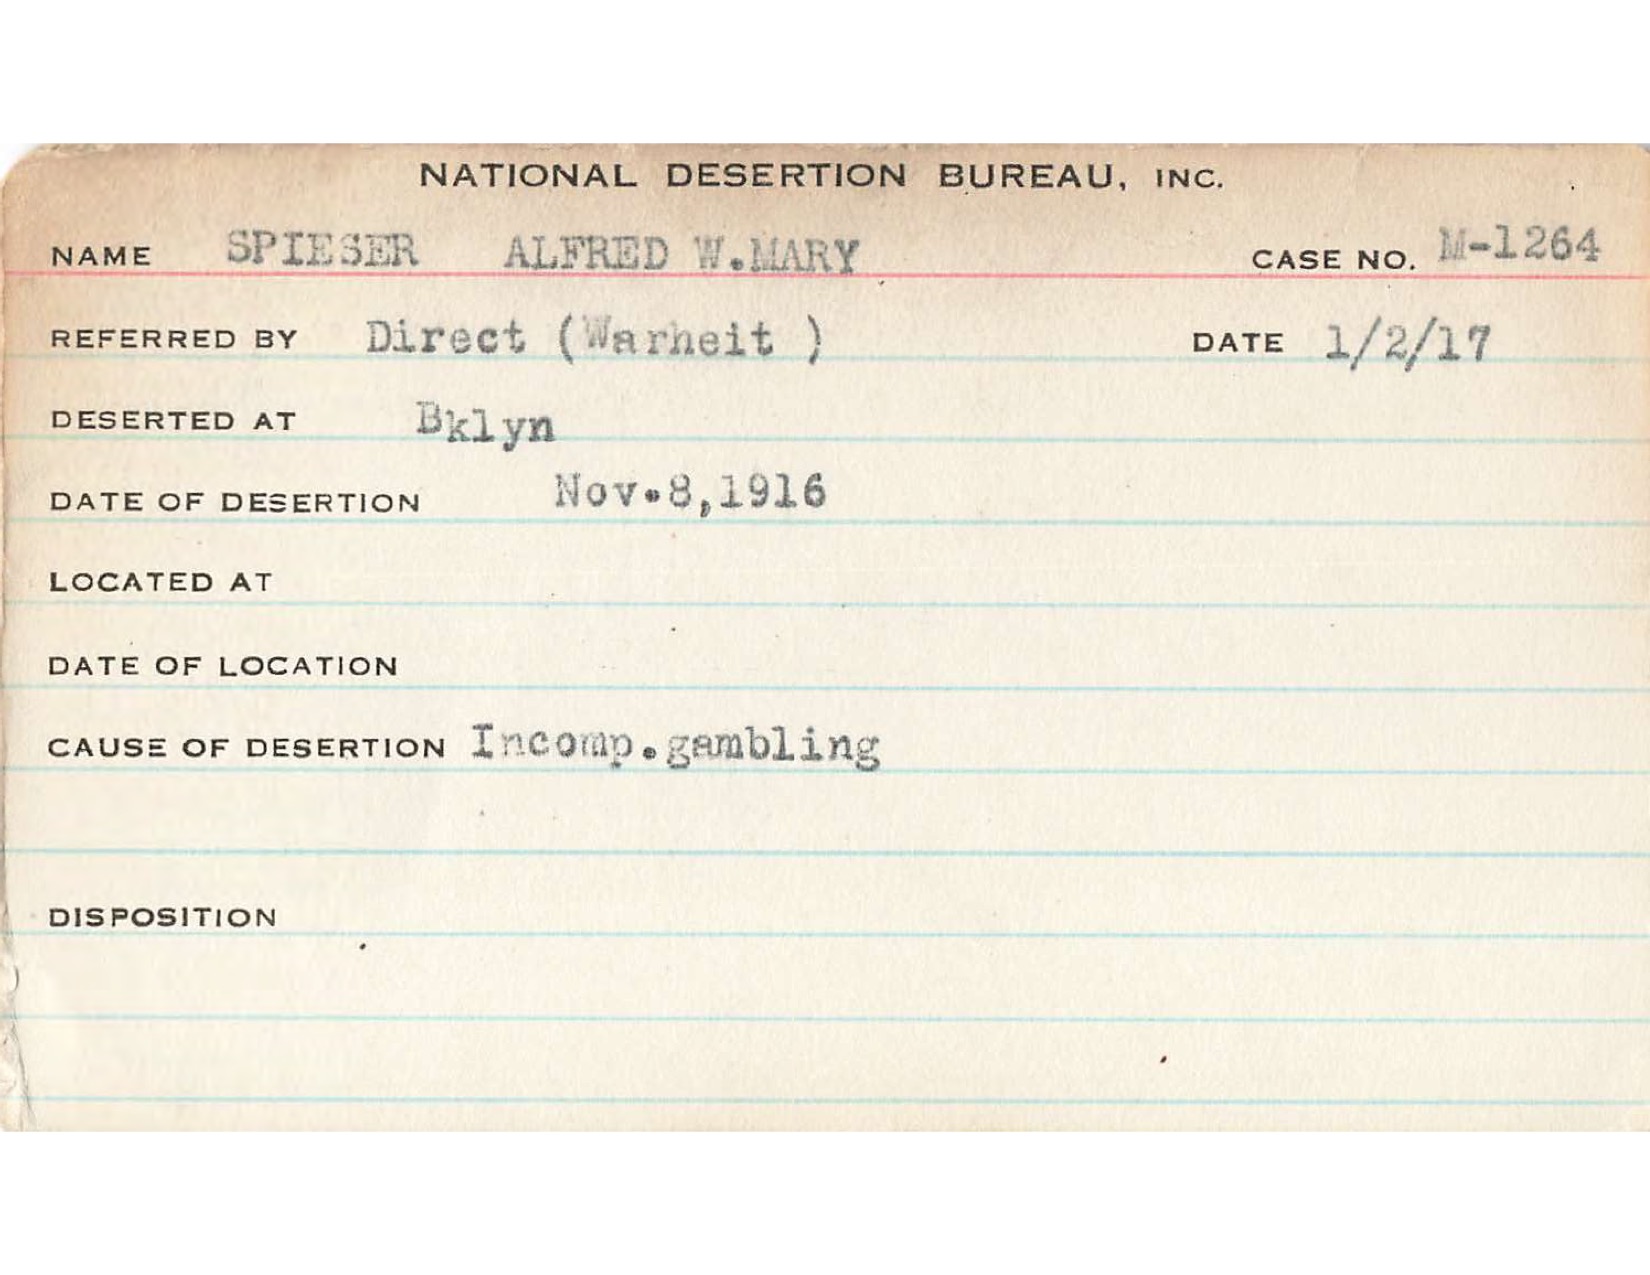 NATIONAL DESERTION BUREAU, INC.
NAME SPIESER ALFRED W.MARY CASE NO. M-1264
REFERRED BY Direct (Warheit ) DATE 1/2/17
DESERTED AT Bklyn
DATE OF DESERTION Nov.8,1916
LOCATED AT
DATE OF LOCATION
CAUSE OF DESERTION Incomp.gambling
DISPOSITION